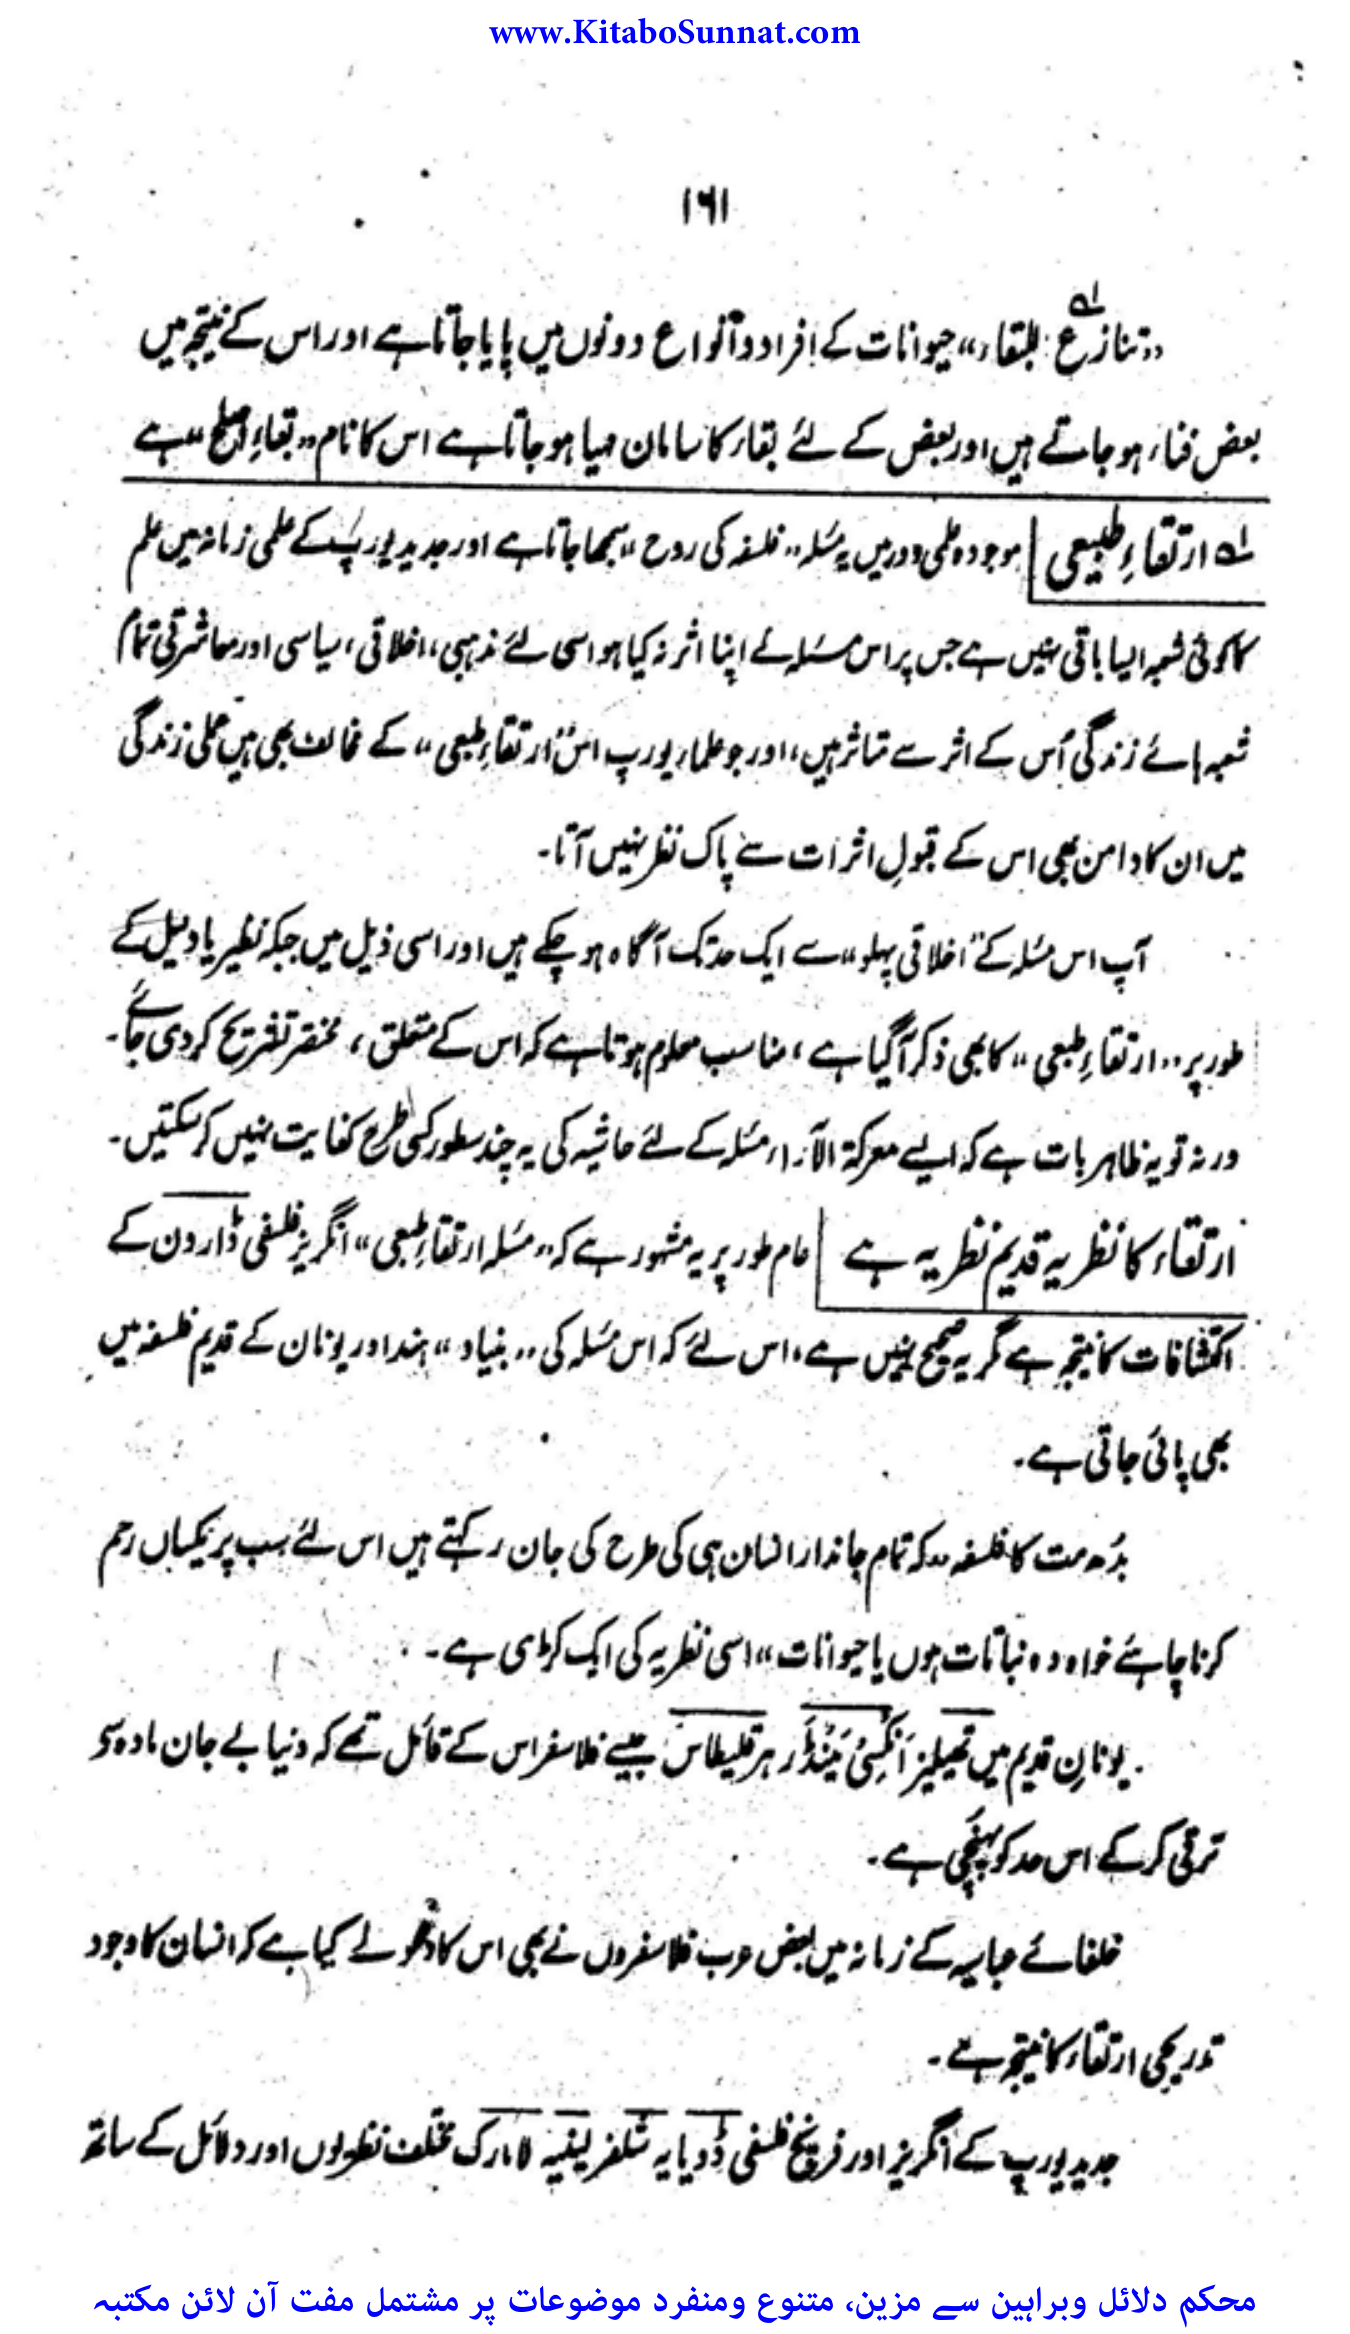 www.KitaboSunnat.com
۱۶۱
"تنازع للبقاء" حیوانات کے افراد و انواع دونوں میں پایا جاتا ہے اور اس کے نتیجہ میں
بعض فناء ہو جاتے ہیں اور بعض کے لئے بقاء کا سامان مہیا ہو جاتا ہے اس کا نام "بقاءِ اصلح" ہے
لہ ارتقاءِ طبیعی | موجودہ علمی دور میں یہ مسئلہ "فلسفہ کی روح" سمجھا جاتا ہے اور جدید یورپ کے علمی زمانہ میں علم
کا کوئی شعبہ ایسا باقی نہیں ہے جس پر اس مسئلہ نے اپنا اثر نہ کیا ہو اسی لئے مذہبی، اخلاقی، سیاسی اور معاشرتی تمام
شعبہ ہائے زندگی اُس کے اثر سے متاثر ہیں، اور جو علماء یورپ اس "ارتقاءِ طبعی" کے مخالف بھی ہیں عملی زندگی
میں ان کا دامن بھی اس کے قبولِ اثرات سے پاک نظر نہیں آتا۔
آپ اس مسئلہ کے "اخلاقی پہلو" سے ایک حد تک آگاہ ہو چکے ہیں اور اسی ذیل میں جبکہ نظیر یا دلیل کے
طور پر "ارتقاءِ طبعی" کا بھی ذکر آگیا ہے، مناسب معلوم ہوتا ہے کہ اس کے متعلق، مختصر تشریح کر دی جائے۔
ورنہ تو یہ ظاہر بات ہے کہ ایسے معرکۃ الآراء مسئلہ کے لئے حاشیہ کی یہ چند سطور کسی طرح کفایت نہیں کر سکتیں۔
ارتقاء کا نظریہ قدیم نظریہ ہے | عام طور پر یہ مشہور ہے کہ "مسئلہ ارتقاءِ طبعی" انگریز فلسفی ڈارون کے
اکتشافات کا نتیجہ ہے مگر یہ صحیح نہیں ہے، اس لئے کہ اس مسئلہ کی "بنیاد" ہند اور یونان کے قدیم فلسفہ میں
بھی پائی جاتی ہے۔
بدُھ مت کا فلسفہ "کہ تمام جاندار انسان ہی کی طرح کی جان رکھتے ہیں اس لئے سب پر یکساں رحم
کرنا چاہئے خواہ وہ نباتات ہوں یا حیوانات" اسی نظریہ کی ایک کڑی ہے۔
یونانِ قدیم میں تھیلیز اَنکِسِیْ مَینْڈَر ہرقلیطاس جیسے فلاسفر اس کے قائل تھے کہ دنیا بے جان مادہ سے
ترقی کر کے اس حد کو پہنچی ہے۔
خلفائے عباسیہ کے زمانہ میں بعض عرب فلاسفروں نے بھی اس کا دعوٰے کیا ہے کہ انسان کا وجود
تدریجی ارتقاء کا نتیجہ ہے۔
جدید یورپ کے انگریز اور فرنچ فلسفی لامارک مختلف نظریوں اور دلائل کے ساتھ
محکم دلائل وبراہین سے مزین، متنوع ومنفرد موضوعات پر مشتمل مفت آن لائن مکتبہ